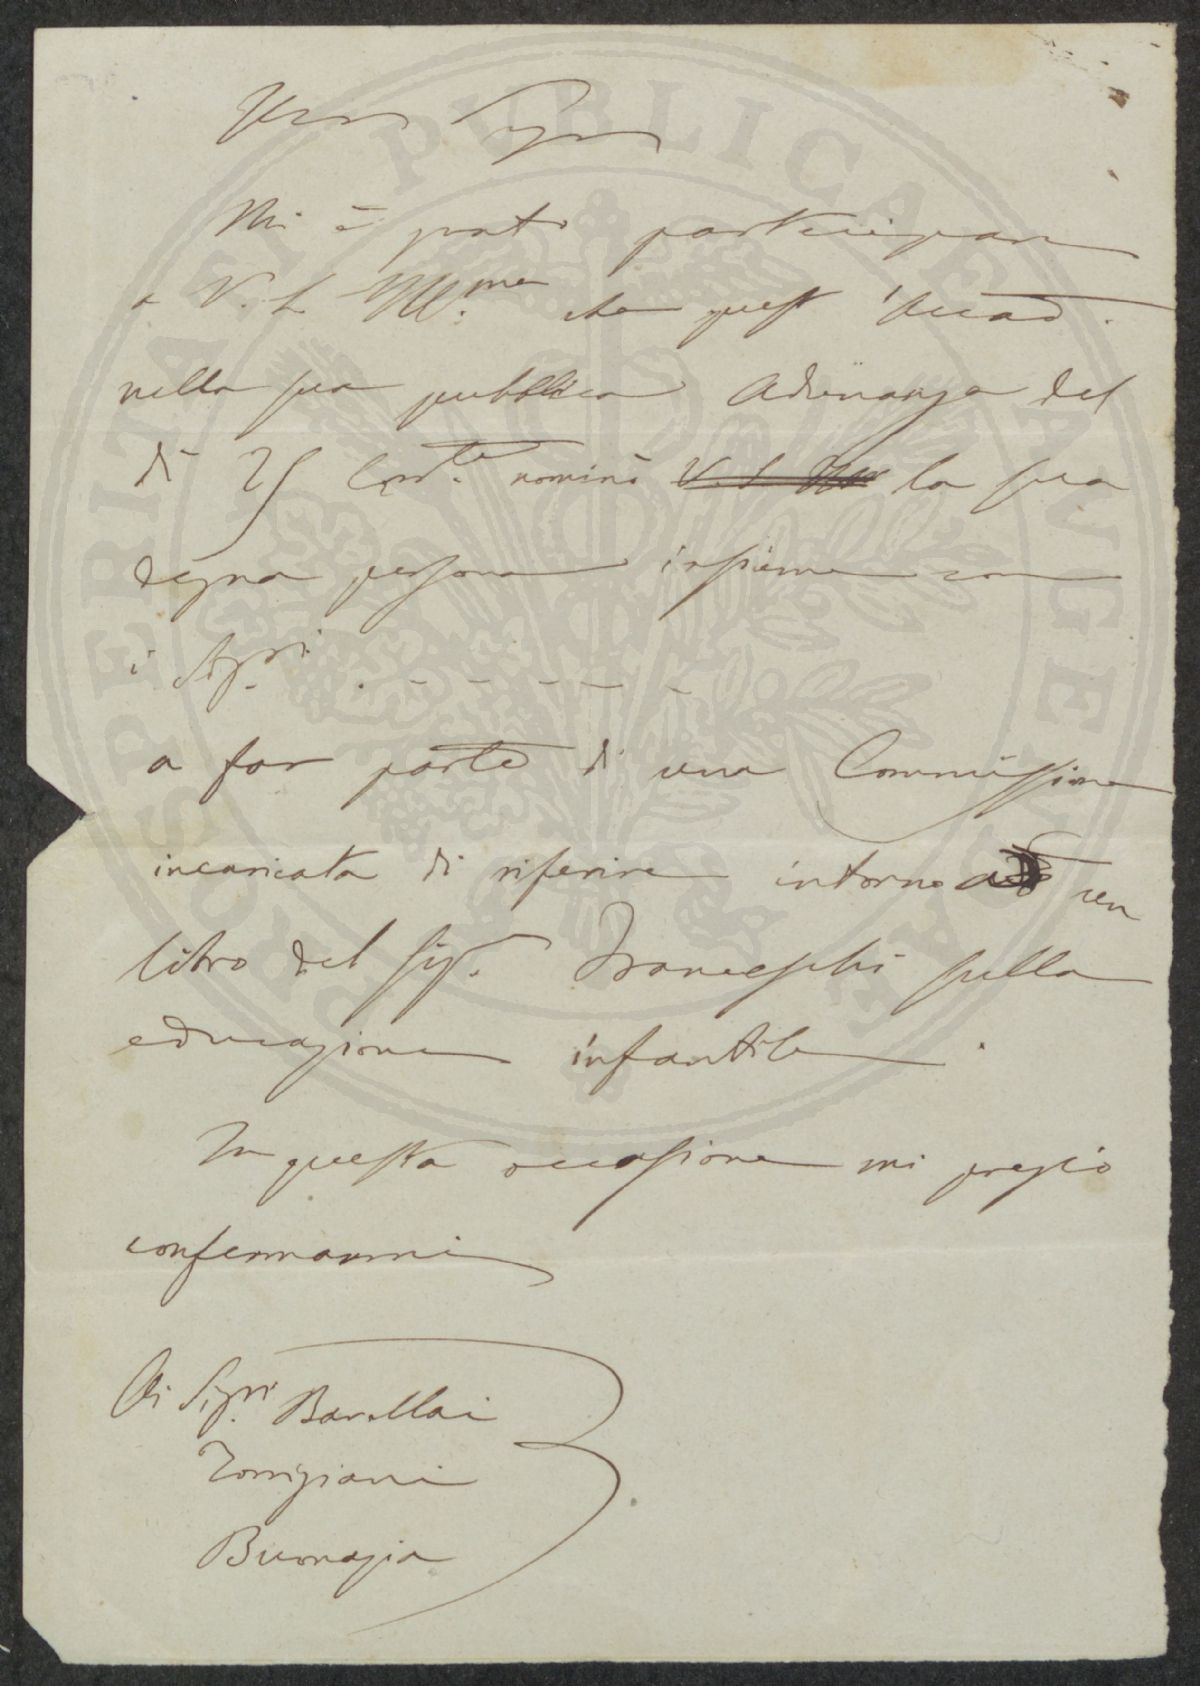 Illmo Sigre
Mi è grato partecipare
a V. S. Ill.ma che quest'Accad.
nella sua pubblica Adunanza del
dì 25 Corr.te nominò V. S. Ill la sua
degna persona insieme con
i Sig.ri . - - - - - -
a far parte di una Commissione
incaricata di riferire intorno ad un
libro del Sig. Franceschi sulla
educazione infantile.
In questa occasione mi pregio
confermarmi
Ai Sig.ri Barellai
Torrigiani
Buonazia
PROSPERITATI PUBLICAE AUGENDAE